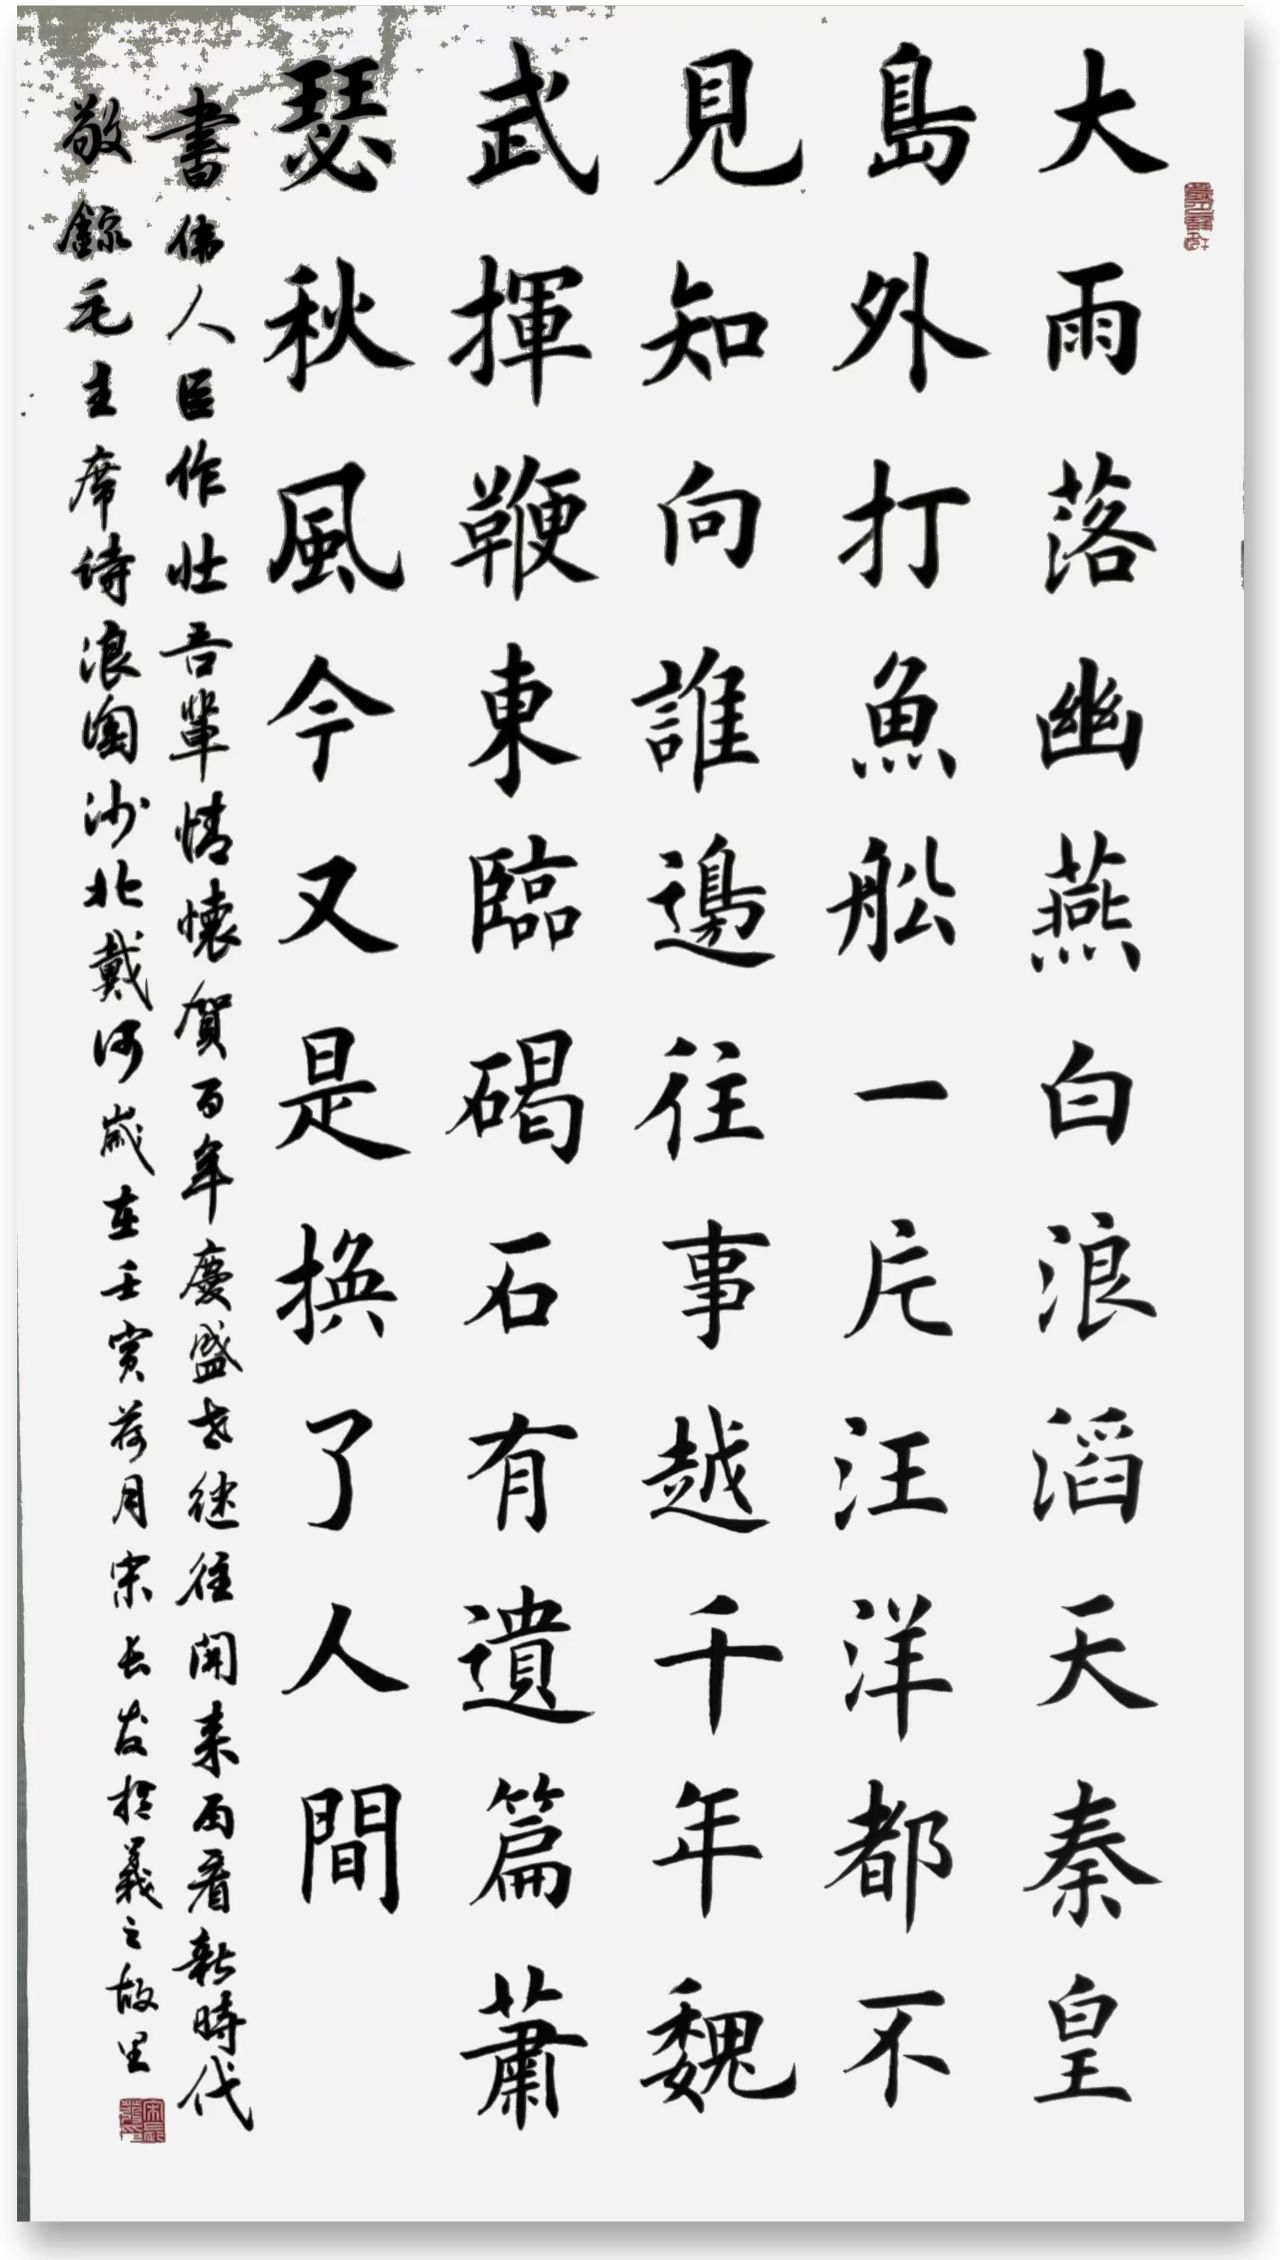 大雨落幽燕白浪滔天秦皇
島外打魚船一片汪洋都不
見知向誰邊往事越千年魏
武揮鞭東臨碣石有遺篇蕭
瑟秋風今又是換了人間
書偉人巨作壯吾輩情懷賀百年慶盛世继往開来再看新時代
敬録毛主席诗浪淘沙北戴河歲在壬寅荷月宋长发於羲之故里